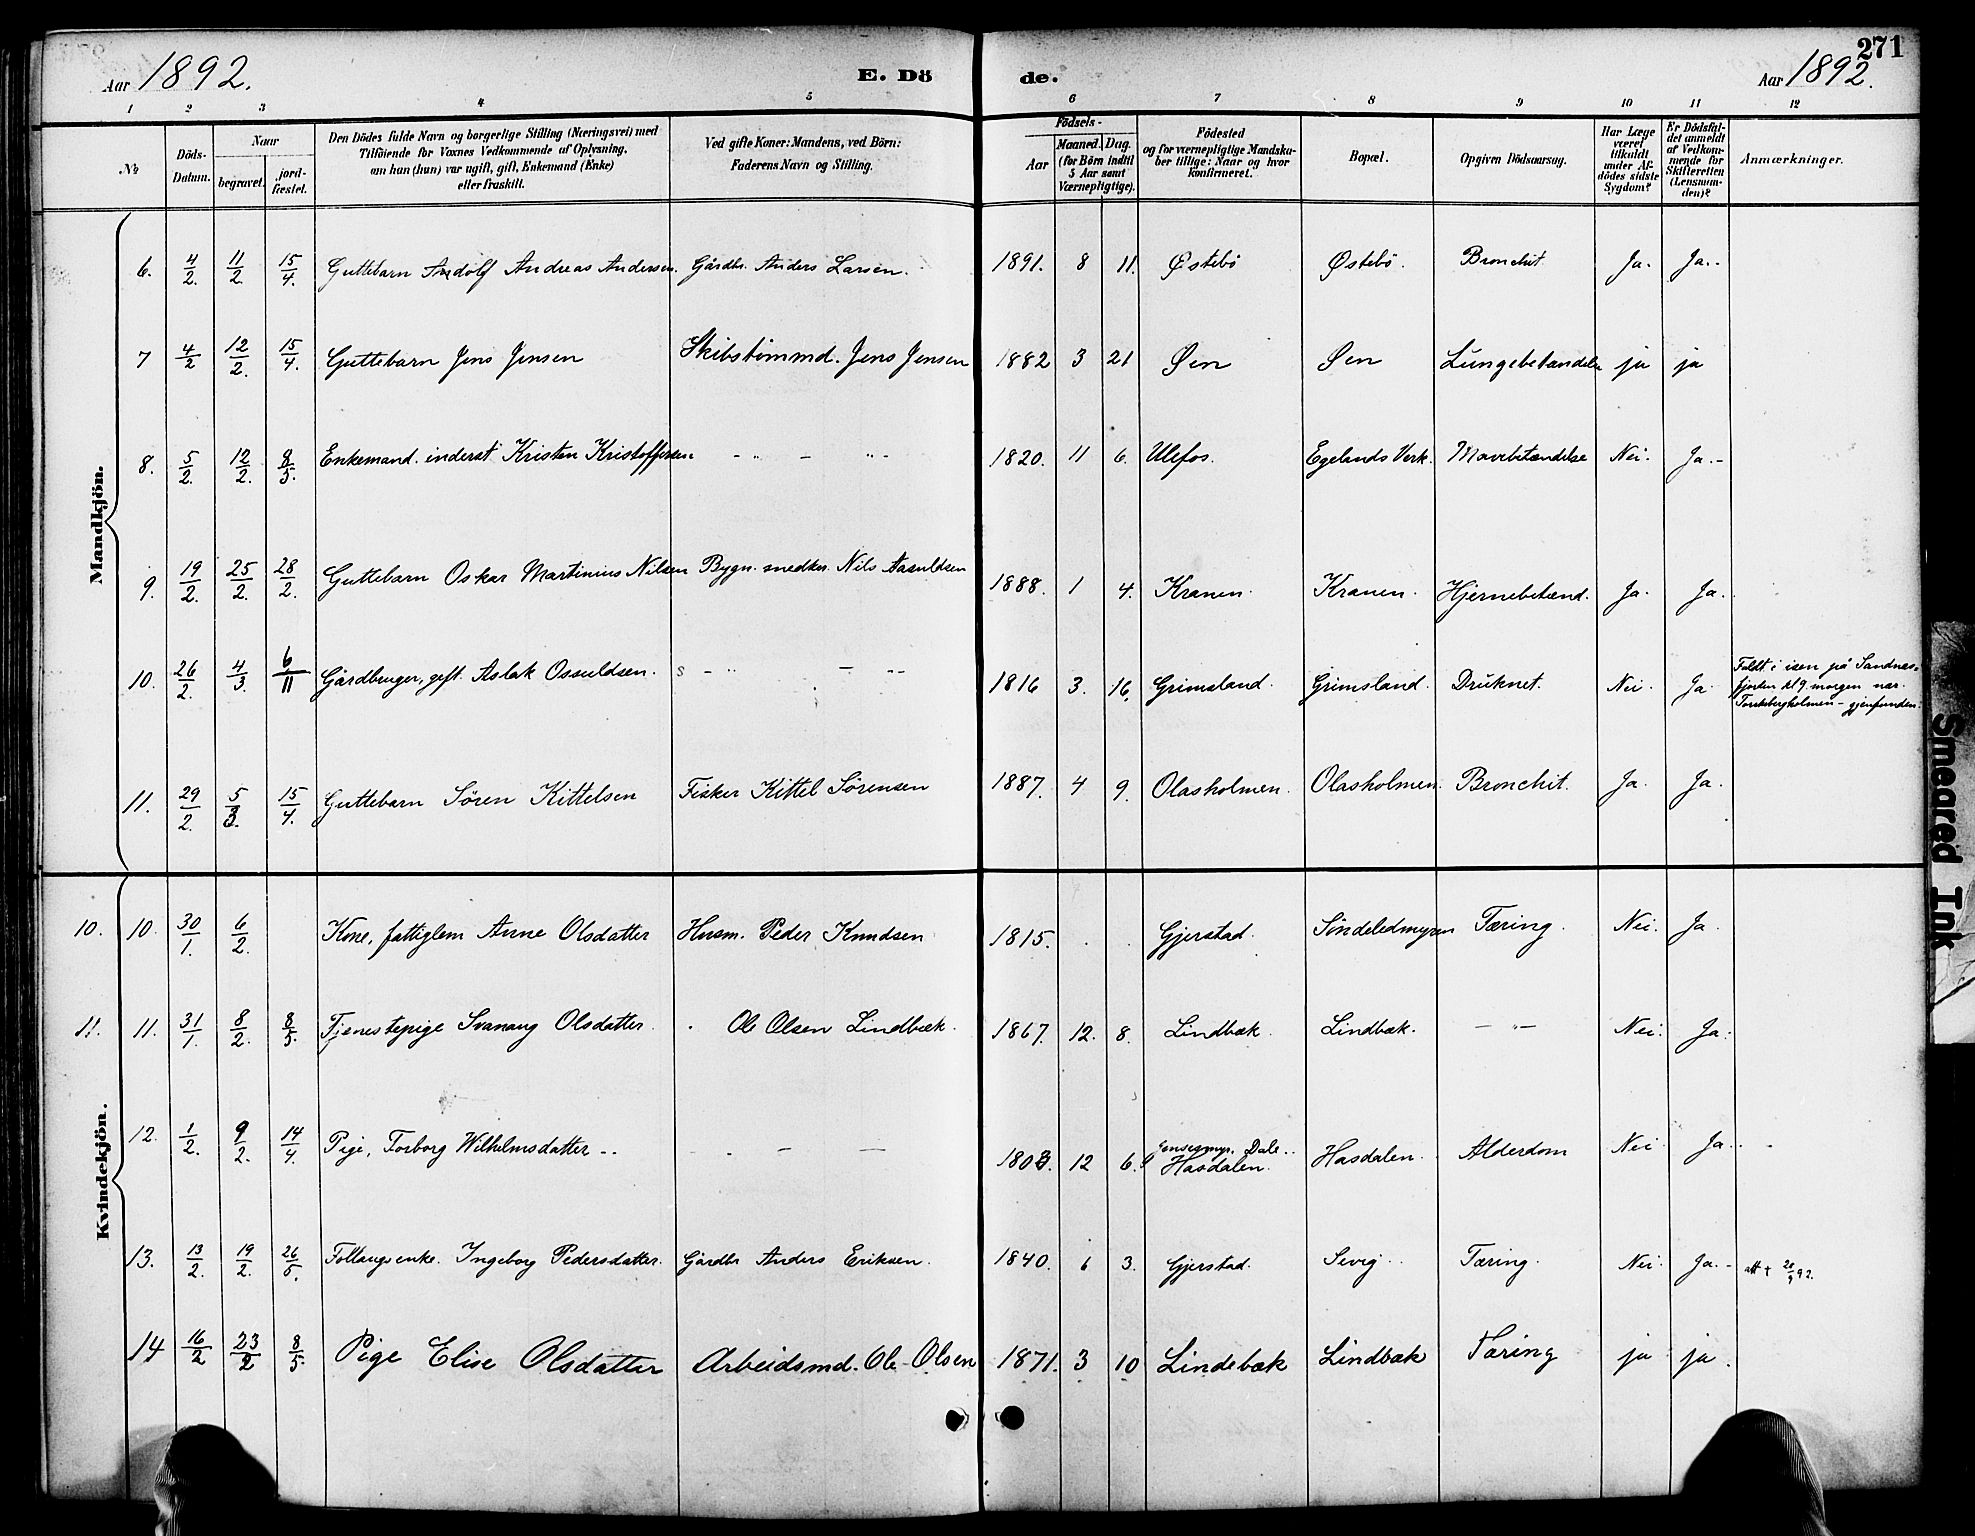 271
Aar 1892. E. Dö de. Aar 1892.
1 2 3 4 5 6 7 8 9 10 11 12
№ Döds-Datum. Naar begravet. jord-fæstet. Den Dödes fulde Navn og borgerlige Stilling (Næringsvei) med Tilföiende for Voxnes Vedkommende af Oplysning, om han (hun) var ugift, gift, Enkemand (Enke) eller fraskilt. Ved gifte Koner: Mandens, ved Börn: Faderens Navn og Stilling. Födsels- Aar Maaned. Dag. (for Börn indtil 5 Aar samt Værnepligtige). Födested og for værnepligtige Mandskaber tillige: Naar og hvor konfirmeret. Bopæl. Opgiven Dödsaarsag. Har Læge været tilkaldt under Afdödes sidste Sygdom? Er Dödsfaldet anmeldt af Vedkommende for Skifteretten (Lensmanden)? Anmærkninger.
Mandkjön.
6. 4/2. 11/2 15/4. Guttebarn Andolf Andreas Andersen. Gårdbr. Anders Larsen. 1891. 8 11. Østebö Østebö. Bronchit Ja. Ja.-
7 4/2 12/2. 15/4. Guttebarn Jens Jensen Skibstömmd. Jens Jensen 1882 3 21 Øen Øen Lungebetændelse ja ja
8. 5/2. 12/2. 8/5. Enkemand. inderst Kristen Kristoffersen - " - " - 1820. 11 6. Ulefos. Egelands Verk. Mavebetændelse Nei. Ja.-
9. 19/2. 25/2. 28/2. Guttebarn Oskar Martinius Nilsen Bygn. snedker. Nils Aasuldsen 1888. 1 4. Kranen. Kranen. Hjernebetænd. Ja. Ja.
10. 26/2. 4/3. 6/11 Gårdbruger, gift. Aslak Ossuldsen. s - " - " - 1816 3. 16. Grimsland. Grimsland. Druknet. Nei. Ja Faldt i isen på Sandnesfjorden kl 9. morgen nær Torskbergholmen - gjenfunden.
11. 29/2. 5/3. 15/4. Guttebarn Sören Kittelsen Fisker Kittel Sörensen 1887. 4 9. Olasholmen. Olasholmen. Bronchit. Ja. Ja.
Kvindekjön.
10. 10. 30/1. 6/2. Kone, fattiglem Anne Olsdatter Husm. Peder Knudsen 1815. . . Gjerstad. Söndeledmyren Tæring. Nei. Ja.
11. 11. 31/1. 8/2. 8/5. Tjenestepige Svanaug Olsdatter. . Ole Olsen Lindbæk. 1867. 12. 8. Lindbæk. Lindbæk. - " - Nei. Ja.
12. 1/2. 9/2. 14/4. Pige, Torborg Wilhelmsdatter -- - - - 1803. 12 6. Jensesmyr, Dale.. Hasdalen. Hasdalen. Alderdom Nei Ja. -
13. 13/2. 19/2. 26/5. Ingeborg Pedersdatter. Gårdbr Anders Eriksen. 1840. 6 3. Gjerstad. Sevig.. Tæring. Nei. Ja.- att + 20/9 92.
14 16/2 23/2 8/5. Pige Elise Olsdatter Arbeidsmd. Ole Olsen 1871. 3 10 Lindebæk Lindbæk Tæring ja ja.
Smeared Ink